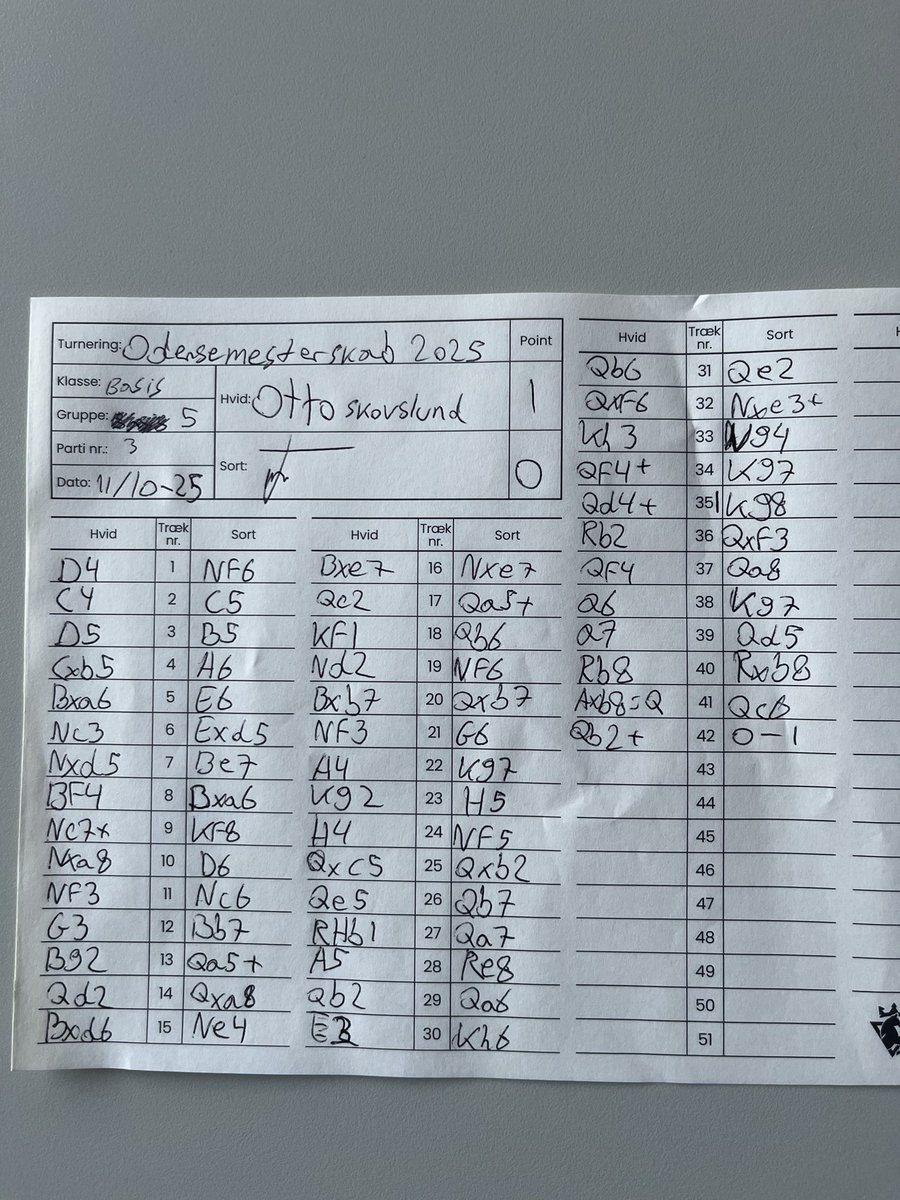 Turnering: Odensemesterskab 2025
Point
Klasse: Basis
Gruppe: 5
Parti nr.: 3
Dato: 11/10-25
Hvid: Otto skovslund
1
Sort:
0
Hvid Træk nr. Sort
D4 1 NF6
C4 2 C5
D5 3 B5
Cxb5 4 A6
Bxa6 5 E6
Nc3 6 Exd5
Nxd5 7 Be7
BF4 8 Bxa6
Nc7+ 9 KF8
Nxa8 10 D6
NF3 11 Nc6
G3 12 Bb7
B92 13 Qa5+
Qd2 14 Qxa8
Bxd6 15 Ne4
Hvid Træk nr. Sort
Bxe7 16 Nxe7
Qc2 17 Qa5+
KF1 18 Qb6
Nd2 19 NF6
Bxb7 20 Qxb7
NF3 21 G6
A4 22 K97
K92 23 H5
H4 24 NF5
Qxc5 25 Qxb2
Qe5 26 Qb7
RHb1 27 Qa7
A5 28 Re8
Qb2 29 Qa6
E3 30 Kh6
Hvid Træk nr. Sort
Qb6 31 Qe2
QxF6 32 Nxe3+
Kh3 33 N94
QF4+ 34 K97
Qd4+ 35 K98
Rb2 36 QxF3
QF4 37 Qa8
a6 38 K97
a7 39 Qd5
Rb8 40 Rxb8
Axb8=Q 41 Qc6
Qb2+ 42 0-1
43
44
45
46
47
48
49
50
51
H